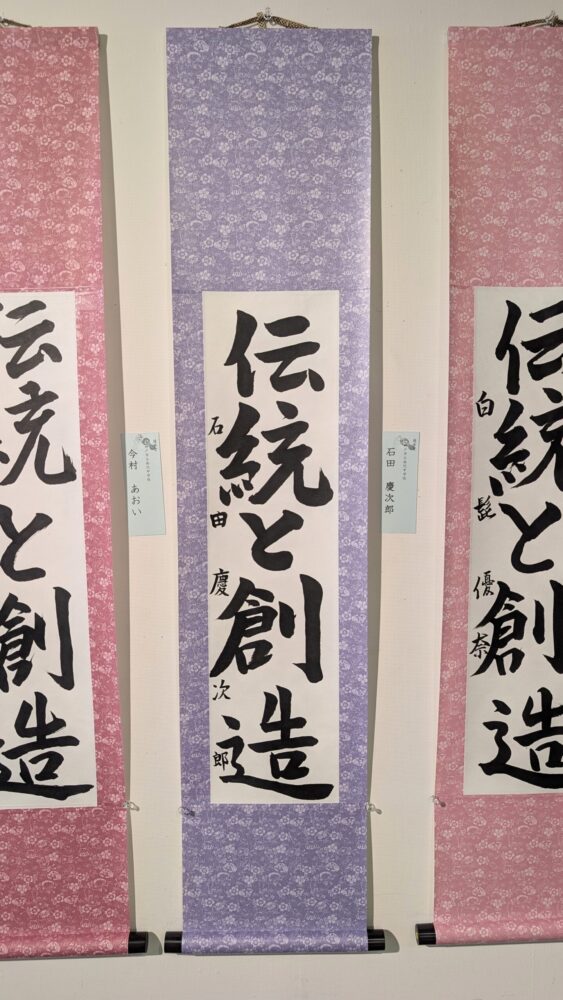 伝統と創造
白髭優奈
石田 慶次郎
伝統と創造
石田慶次郎
今村 あおい
伝統と創造